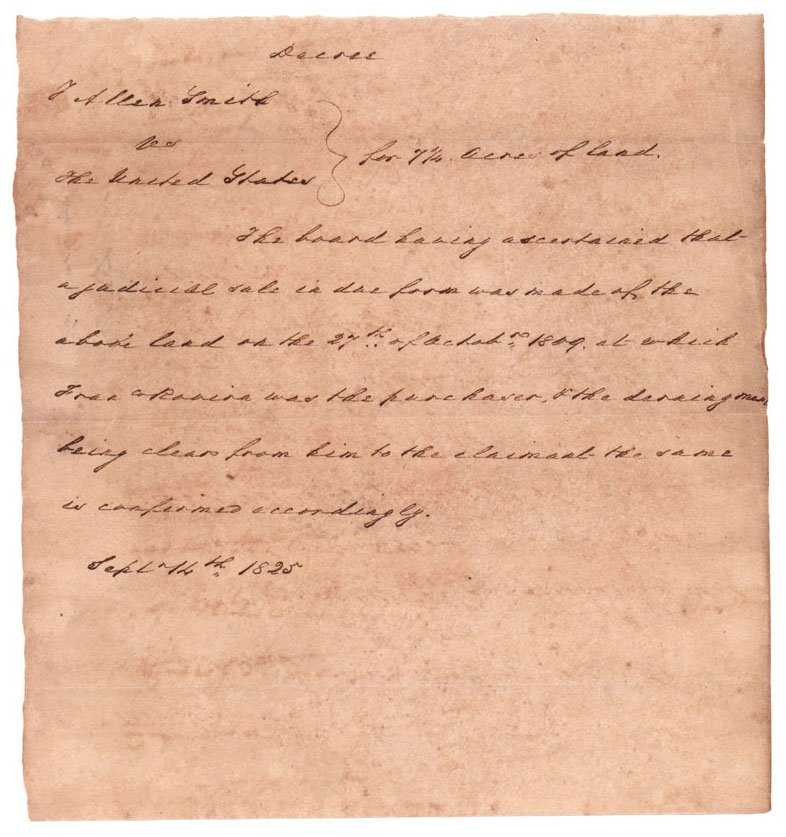 Decree
F Allen Smith
vs
The United States
for 7¼ Acres of land.
The board having ascertained that
a judicial sale in due form was made of the
above land on the 27th of Octobr 1809. at which
Franco Rovira was the purchaser, & the
being clear from him to the claimant the same
is confirmed accordingly.
Septr 14th 1825